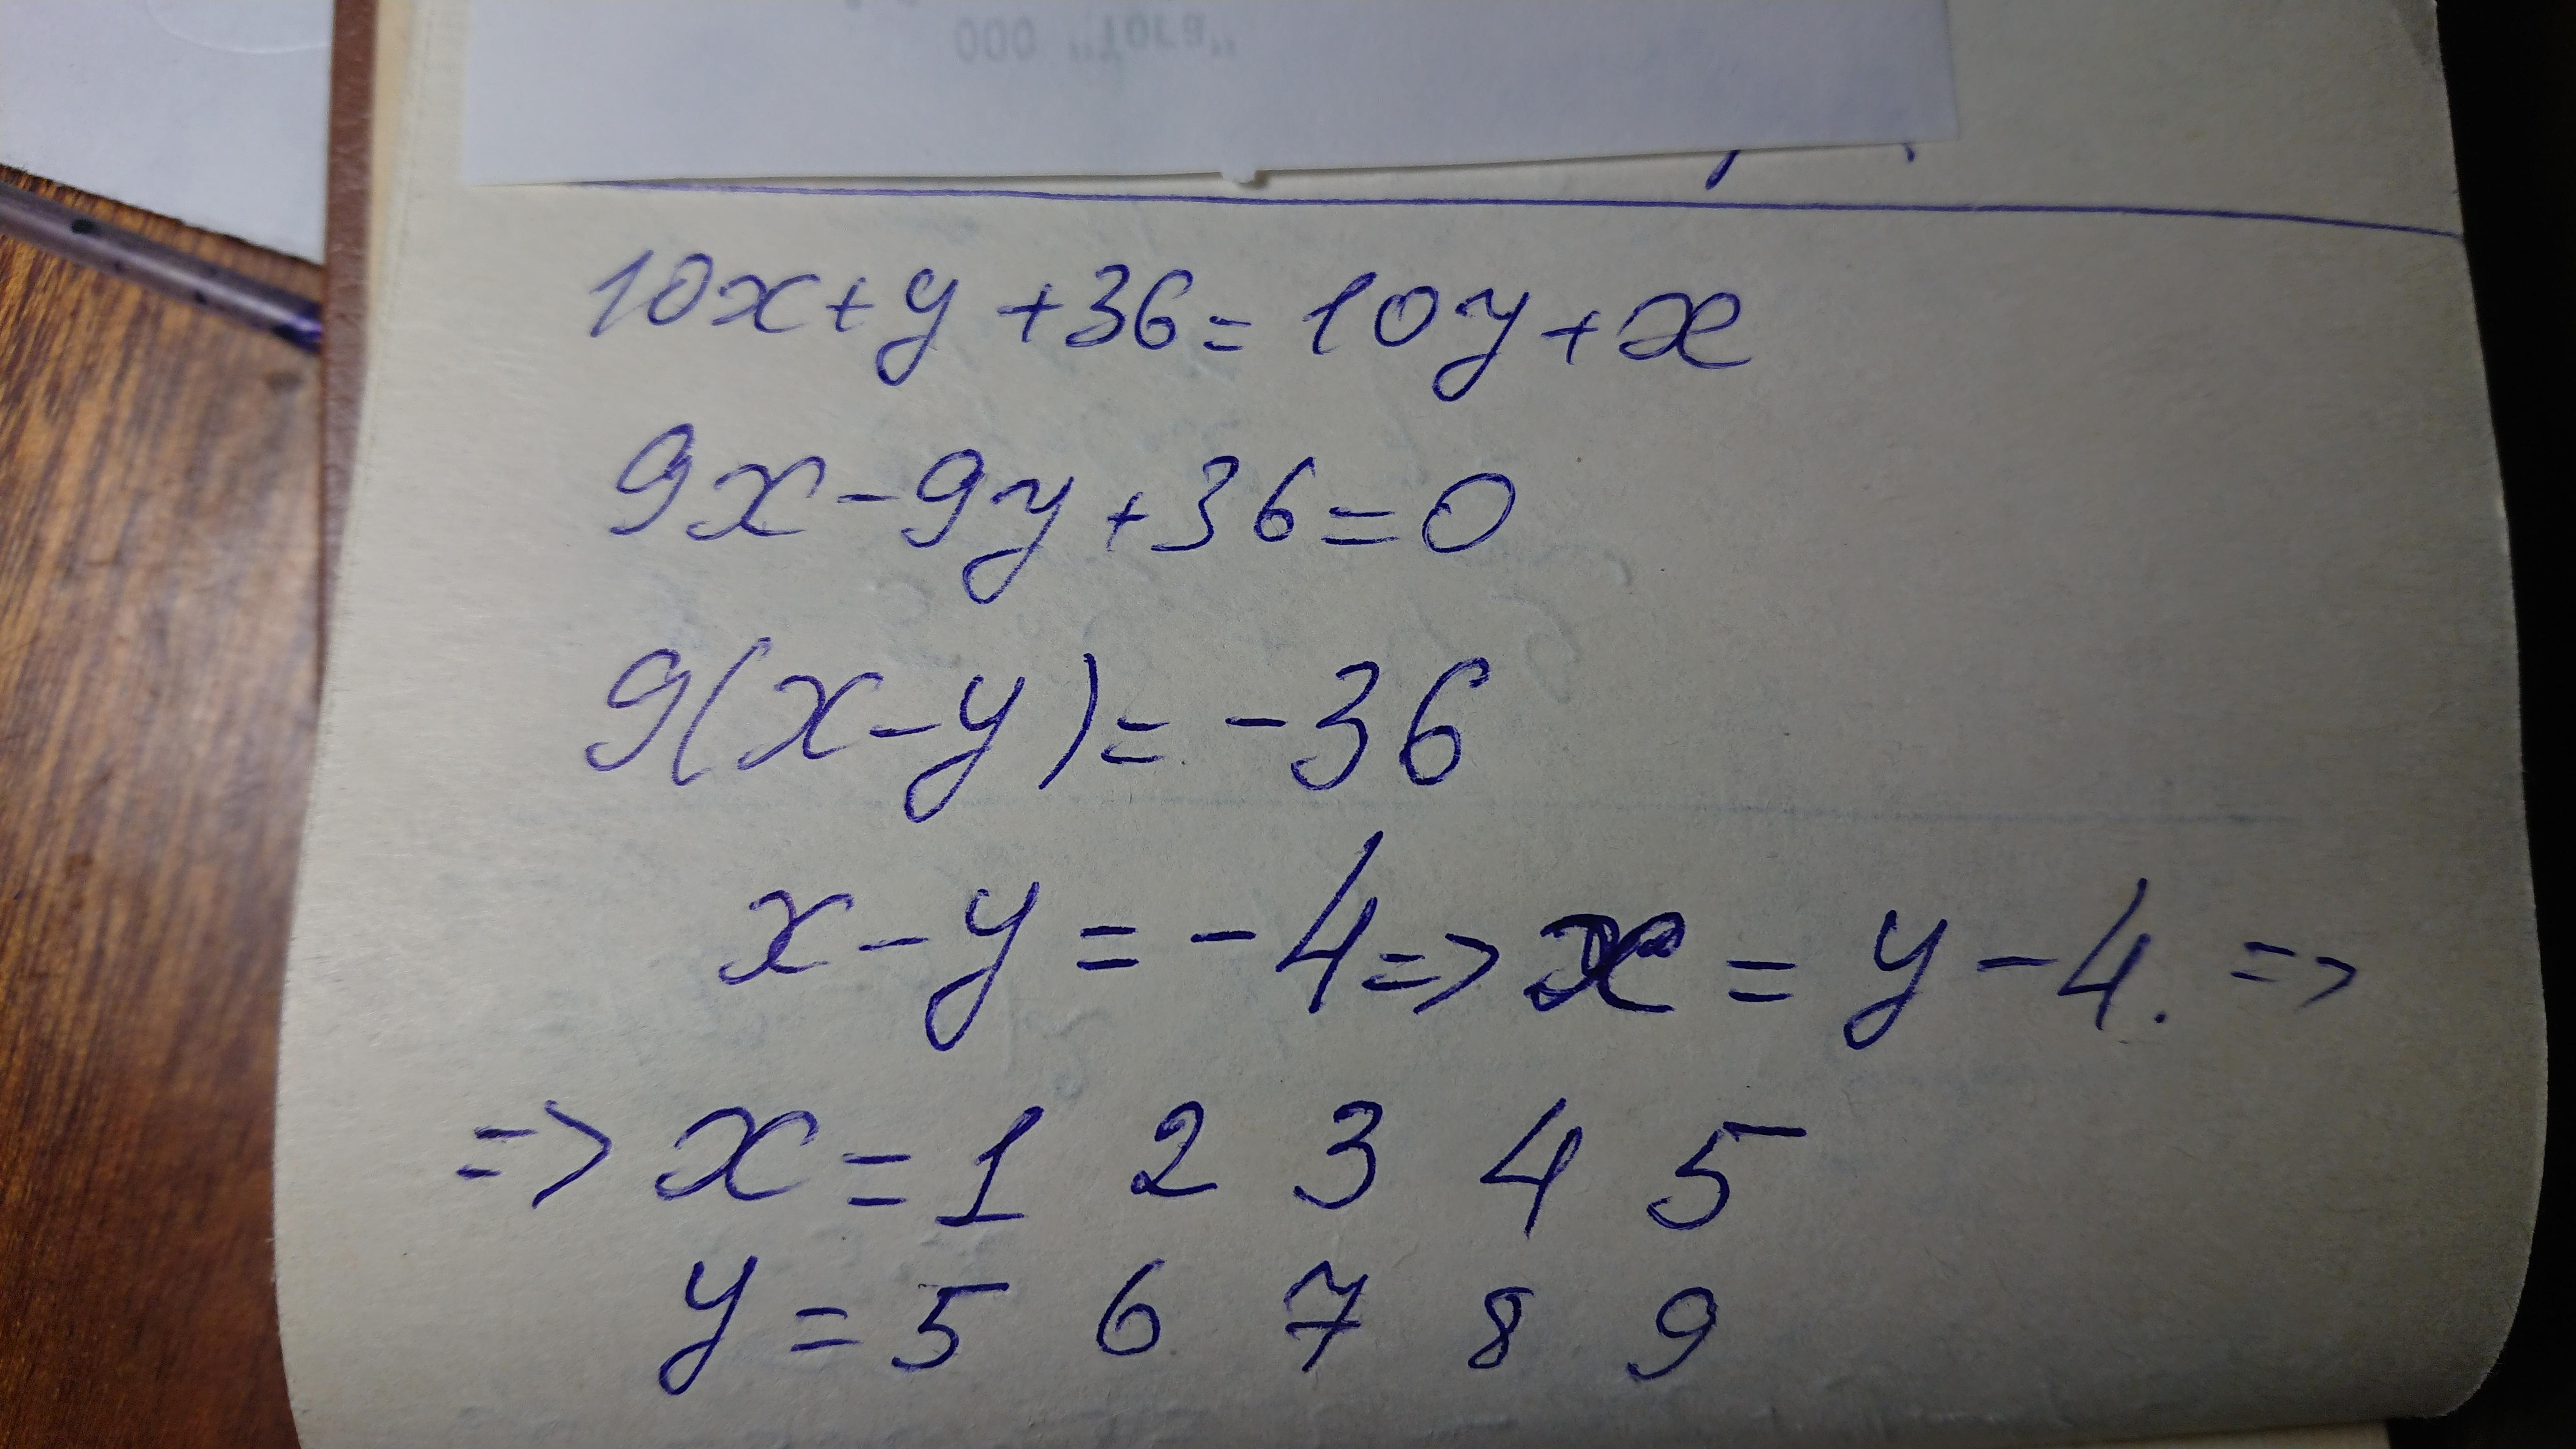 ООО "Тога"
10x+y+36=10y+x
9x-9y+36=0
9(x-y)=-36
x-y=-4=>x=y-4.=>
=>x=1 2 3 4 5
y=5 6 7 8 9